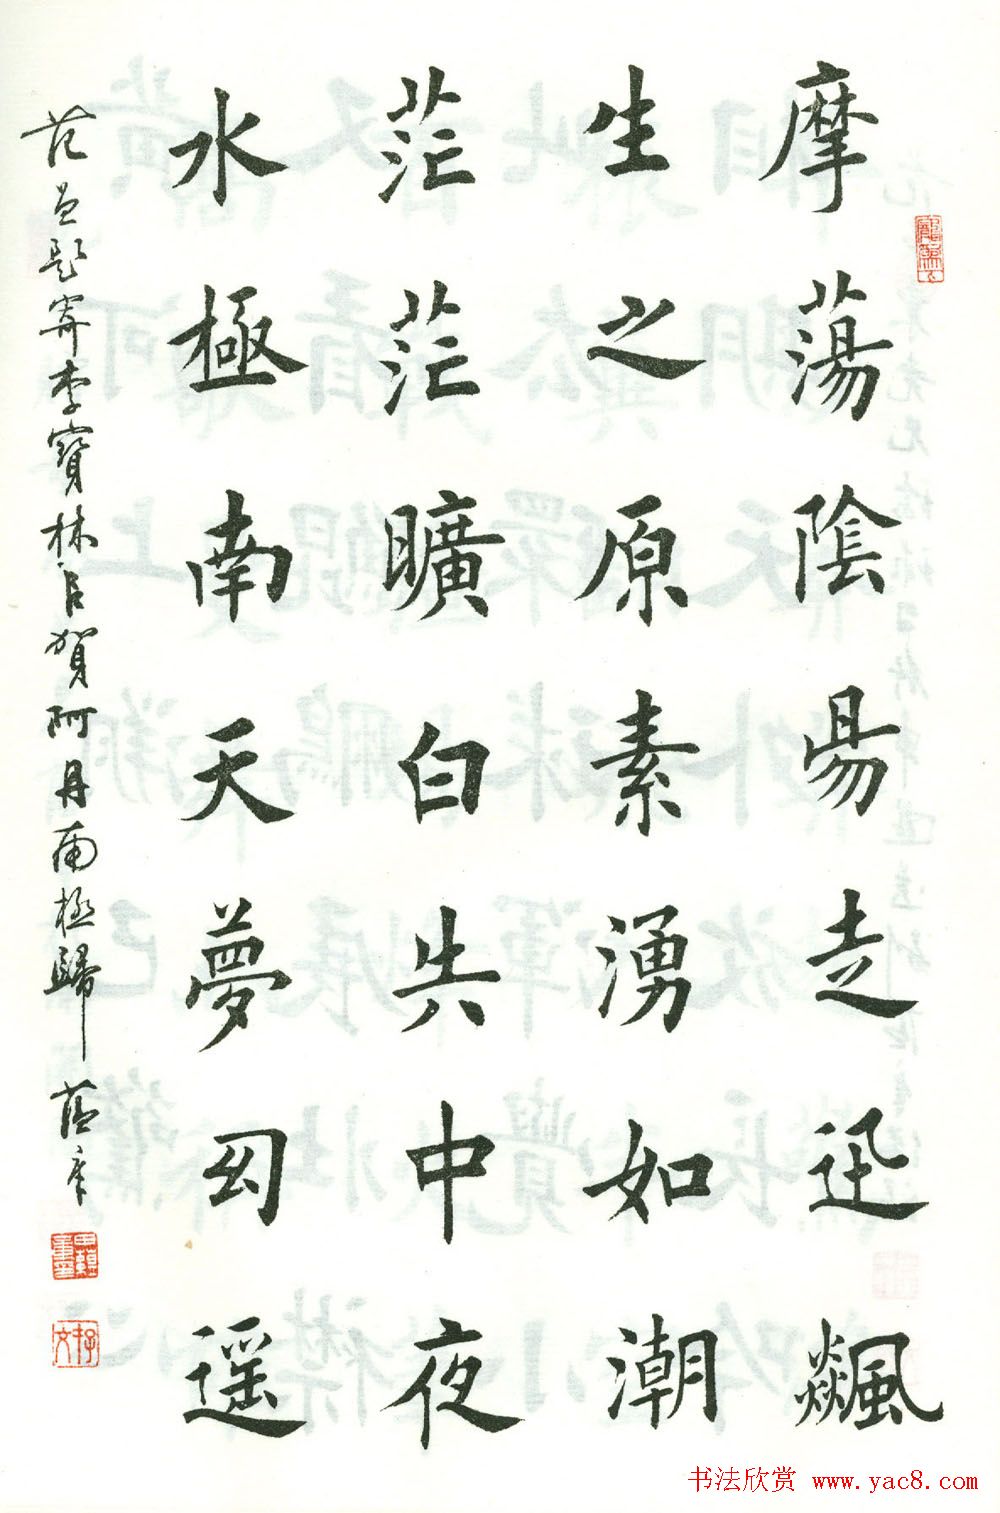 摩蕩陰陽走迅飆
生之原素湧如潮
茫茫曠白共中夜
水極南天夢幻遥
范曾題寄李寶林君賀阿丹南極歸
書法欣赏 www.yac8.com